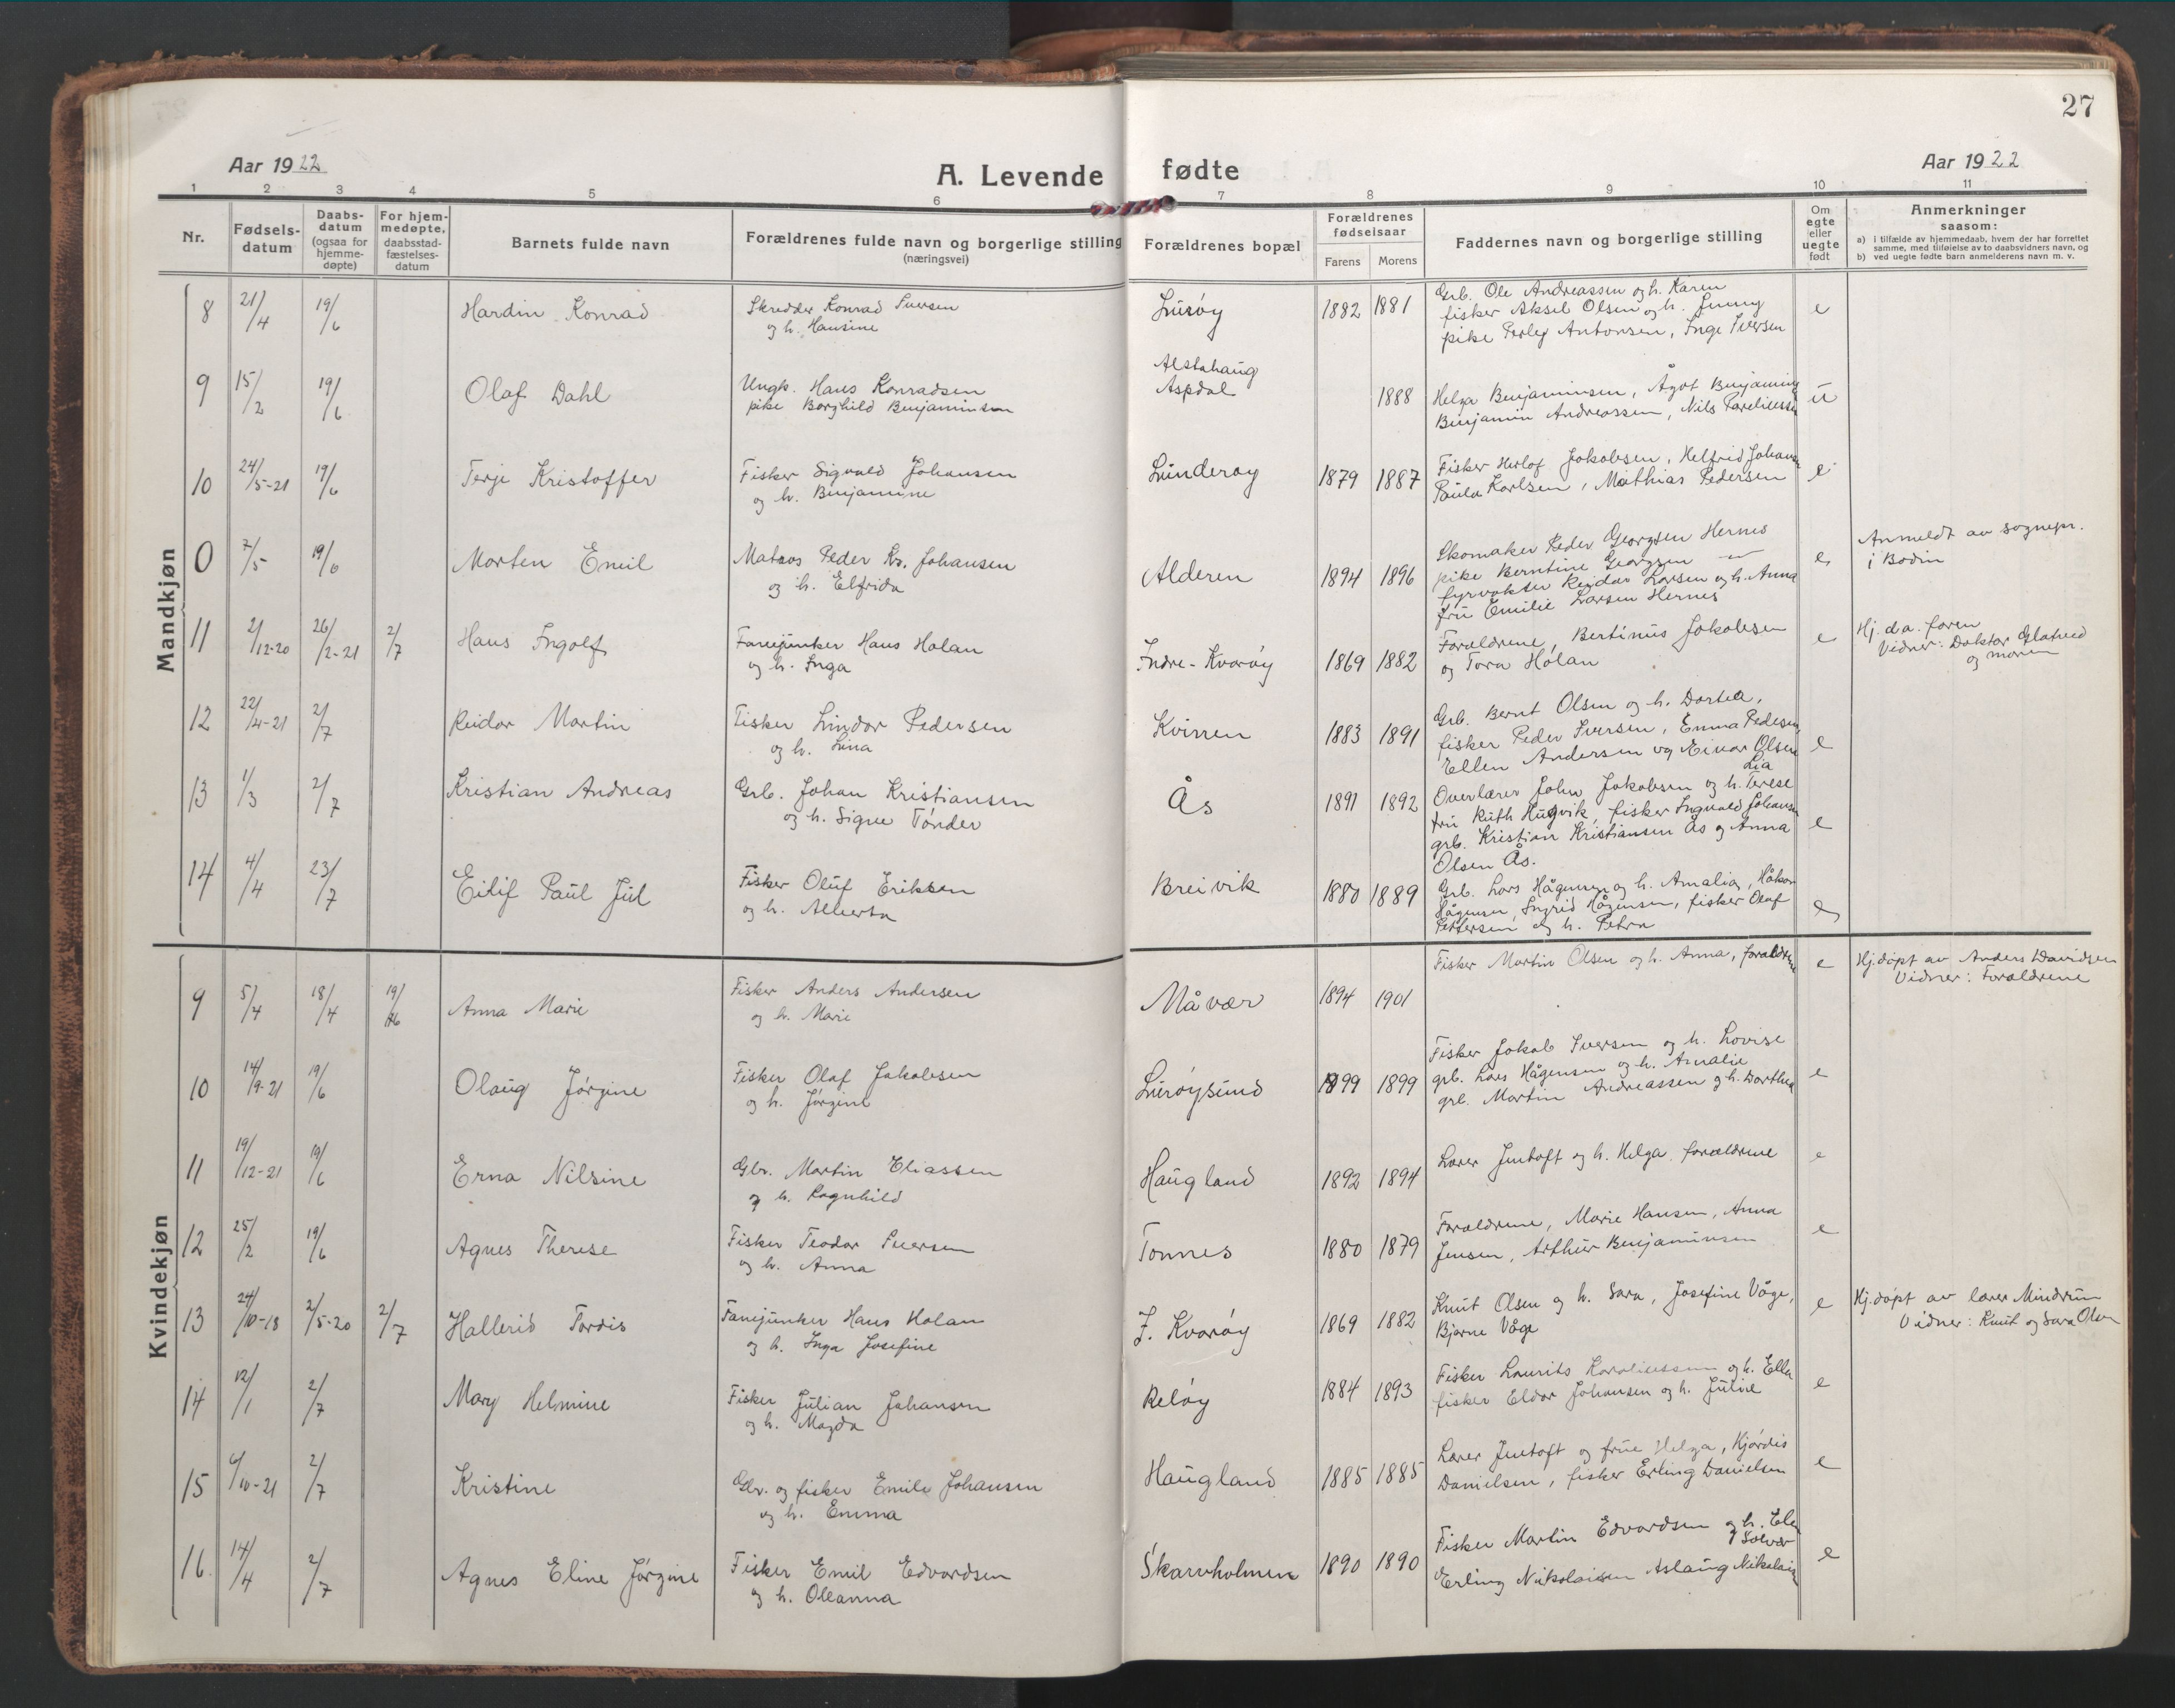 27
Aar 1922
A. Levende fødte
Aar 1922
1 2 3 4 5 6 7 8 9 10 11
Nr.
Fødsels-datum
Daabs-datum (ogsaa for hjemme-døpte)
For hjem-medøpte, daabsstad-fæstelses-datum
Barnets fulde navn
Forældrenes fulde navn og borgerlige stilling (næringsvei)
Forældrenes bopæl
Forældrenes fødselsaar
Farens Morens
Faddernes navn og borgerlige stilling
Om egte eller uegte født
Anmerkninger saasom:
a) i tilfælde av hjemmedaab, hvem der har forrettet samme, med tilføielse av to daabsvidners navn, og
b) ved uegte fødte barn anmelderens navn m. v.
Mandkjøn
8 21/4 19/6 Hardin Konrad
Skredder Konrad Iversen
og h. Hansine
Lurøy 1882 1881
Grb. Ole Andreassen og h. Karen
fisker Aksel Olsen og h. Jenny
pike Perley Antonsen, Inge Iversen
e
9 15/2 19/6 Olaf Dahl
Ungk. Hans Konradsen
pike Borghild Benjaminsen
Alstahaug
Aspdal 1888
Helga Benjaminsen, Ågot Benjamins
Benjamin Andreassen, Nils
u
10 24/5-21 19/6 Terje Kristoffer
Fisker Sigvald Johansen
og h. Benjamine
Lunderøy 1879 1887
Fisker Herlof Jakobsen, Helfrid Johans
Paula Karlsen, Mathias Pedersen
e
0 7/5 19/6 Morten Emil
Matros Peder Kr. Johansen
og h. Elfrida
Alderen 1894 1896
Skomaker Peder Georgsen Hernes
pike Berntine Georgsen —"—
fyrvokter Reidar Larsen og h. Anna
fru Emilie Larsen Hernes
e
Anmeldt av sognepr.
i Bodin
11 2/12-20 26/2-21 2/7 Hans Ingolf
Fanejunker Hans Holan
og h. Inga
Indre-Kvarøy 1869 1882
Foreldrene, Bertinus Jakobsen
og Tora Holan
e
Hj. da. faren
Vidner: Doktor Glatved
og moren
12 22/4-21 2/7 Reidar Martin
Fisker Lindor Pedersen
og h. Lina
Kvinen 1883 1891
Grb. Bernt Olsen og h. Dortea,
fisker Peder Iversen, Emma Pedesen
Ellen Andersen og Einar Olsen
Lia
e
13 1/3 2/7 Kristian Andreas
Grb. Johan Kristiansen
og h. Signe Tønder
Ås 1891 1892
Overlærer John Jakobsen og h. Terese
fru Ruth Hugvik, fisker Ingvald Johansen
grb. Kristian Kristiansen Ås og Anna
Olsen Ås.
e
14 4/4 23/7 Eilif Paul Jul
Fisker Oluf Eriksen
og h. Alberta
Breivik 1880 1889
Grb. Lars Hågensen og h. Amalia, Håkon
Hågensen, Ingrid Hågensen, fisker Olaf
Pettersen og h. Petra
e
Kvindekjøn
9 5/4 18/4 19/6 Anna Marie
Fisker Anders Andersen
og h. Marie
Måvær 1894 1901
Fisker Martin Olsen og h. Anna, foreldrene
e
Hj.døpt av Anders Davidsen
Vidner: Forældrene
10 14/9-21 19/6 Olaug Jørgine
Fisker Olaf Jakobsen
og h. Jørgine
Lurøysund 1899 1899
Fisker Jakob Iversen og h. Lovise
grb. Lars Hågensen og h. Amalie
grb. Martin Andreassen og h. Dorthea
e
11 19/12-21 19/6 Erna Nilsine
Gbr. Martin Eliassen
og h. Ragnhild
Haugland 1892 1894
Lærer Jentoft og h. Helga. forældrene
e
12 25/2 19/6 Agnes Therese
Fisker Teodor Iversen
og h. Anna
Tonnes 1880 1879
Forældrene, Marie Hansen, Anna
Jensen, Arthur Benjaminsen
e
13 24/10-18 2/5-20 2/7 Hallerid Tordis
Fanejunker Hans Holan
og h. Inga Josefine
I. Kvarøy 1869 1882
Knut Olsen og h. Sara, Josefine Våge,
Bjarne Våge
e
Hj.døpt av lærer Mindrum
Vidner: Knut og Sara Olsen
14 12/1 2/7 Mary Helmine
Fisker Julian Johansen
og h. Magda
Reløy 1884 1893
Fisker Laurits Karoliussen og h. Ella
fisker Eldor Johansen og h. Julie
e
15 4/10-21 2/7 Kristine
Gbr. og fisker Emil Johansen
og h. Emma
Haugland 1885 1885
Lærer Jentoft og frue Helga, Hjørdis
Danielsen, fisker Erling Danielsen
e
16. 14/4 2/7 Agnes Eline Jørgine
Fisker Emil Edvardsen
og h. Oleanna
Skarvholmen 1890 1890
Fisker Martin Edvardsen og h. Elen
Solvær
Erling Nikolaisen Aslaug Nikolaisen
e